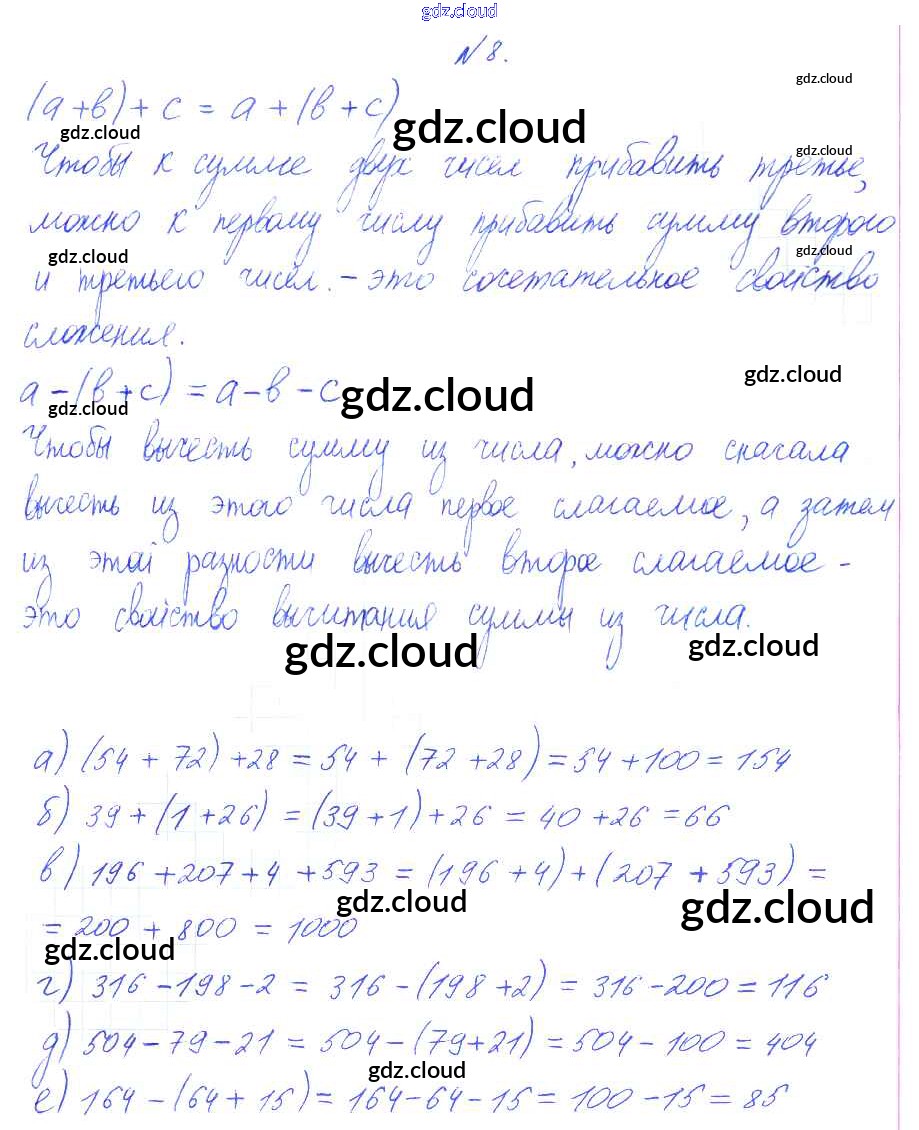 gdz.cloud
№ 8.
gdz.cloud
(а+в)+ с = а + (в + с)
gdz.cloud
gdz.cloud
gdz.cloud
Чтобы к сумме двух чисел прибавить третье,
можно к первому числу прибавить сумму второго
gdz.cloud
gdz.cloud
и третьего чисел. – это сочетательное свойство
сложения.
а – (в + с) = а – в – с
gdz.cloud
gdz.cloud
gdz.cloud
Чтобы вычесть сумму из числа, можно сначала
вычесть из этого числа первое слагаемое, а затем
из этой разности вычесть второе слагаемое –
это свойство вычитания суммы из числа.
gdz.cloud
gdz.cloud
а) (54 + 72) +28 = 54 + (72 +28) = 54 +100 = 154
б) 39 + (1 +26) = (39 +1) + 26 = 40 +26 = 66
в) 196 +207 +4 +593 = (196 +4) + (207 +593) =
gdz.cloud
gdz.cloud
= 200 + 800 = 1000
gdz.cloud
г) 316 –198 –2 = 316 –(198 +2) = 316 –200 = 116
д) 504 – 79 – 21 = 504 – (79+21) = 504 – 100 = 404
gdz.cloud
е) 164 – (64 + 15) = 164 –64 – 15 = 100 –15 = 85